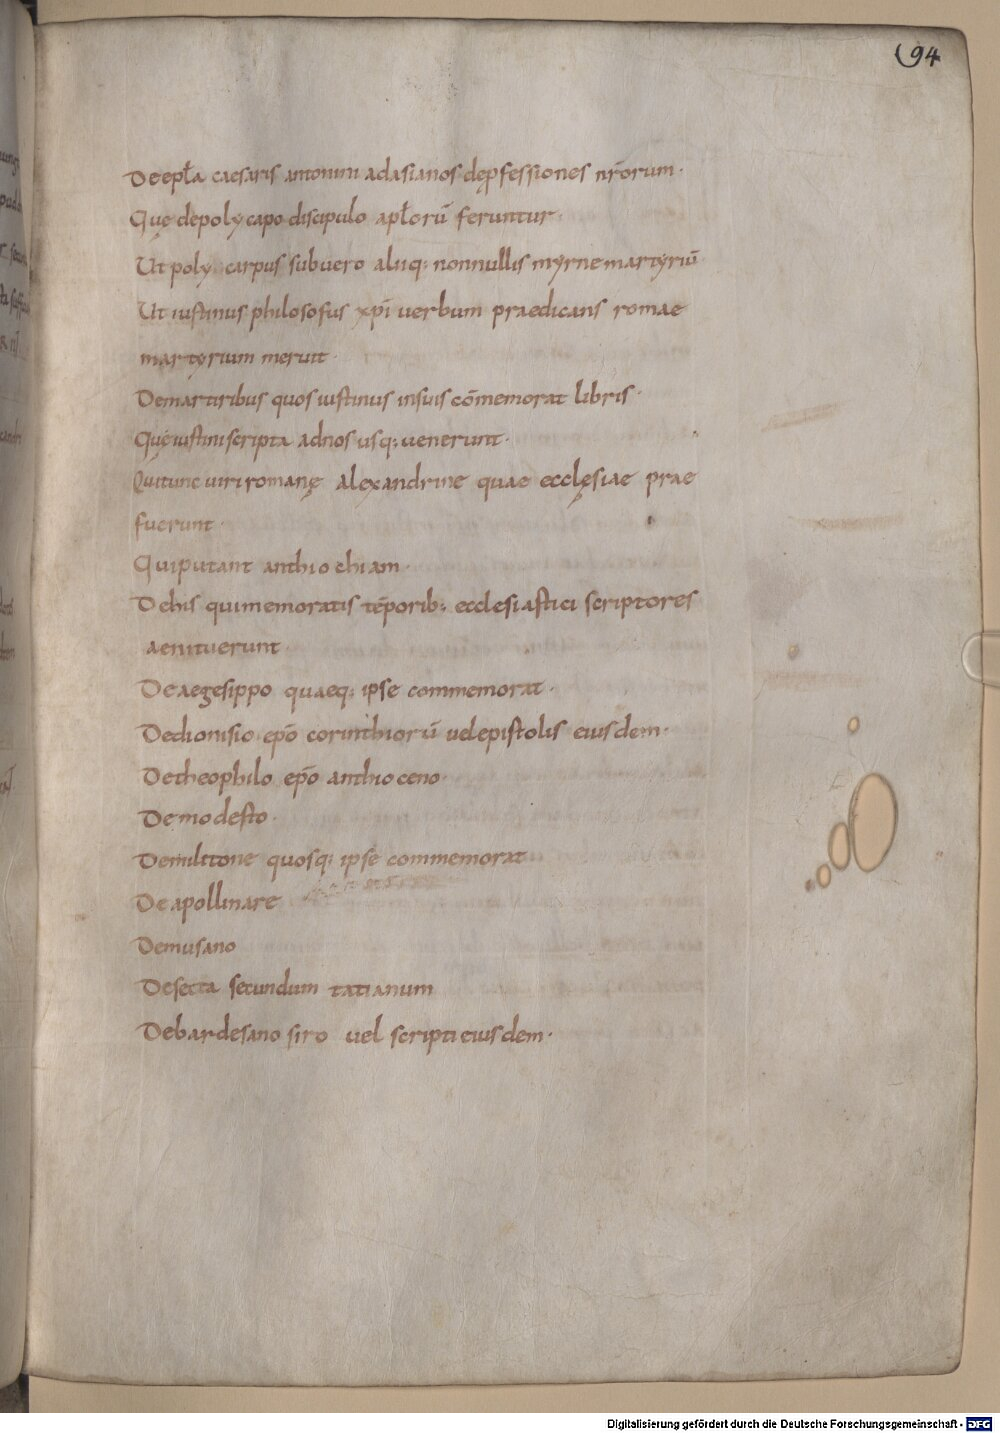 94
De epƚa caesaris antonini ad asianos de ꝓfessiones nr̄orum·
Quę de polycapo discipulo apƚorū feruntur·
Ut poly carpus sub uero aliiq; nonnullis myrne martyriū
Ut iustinus philosofus xp̄i uerbum praedicans romae
martyrium meruit·
De martiribus quos iustinus in suis cōmemorat libris·
Quę iustini scripta ad nos usq; uenerunt·
Qui tunc uiri romanę alexandrine quae ecclęsiae prae
fuerunt·
Qui putant anthiochiam·
De his qui memoratis tēporib; ecclesiastici scriptores
aenituerunt·
De aegesippo quaeq; ipse commemorat·
De dionisio ep̄o corinthiorū uel epistolis eiusdem·
De theophilo ep̄o anthioceno·
De modesto·
De militone quosq; ipse commemorat
De apollinare
De musano
De secta secundum tatianum
De bardesano siro uel scripti eiusdem·
Digitalisierung gefördert durch die Deutsche Forschungsgemeinschaft - DFG